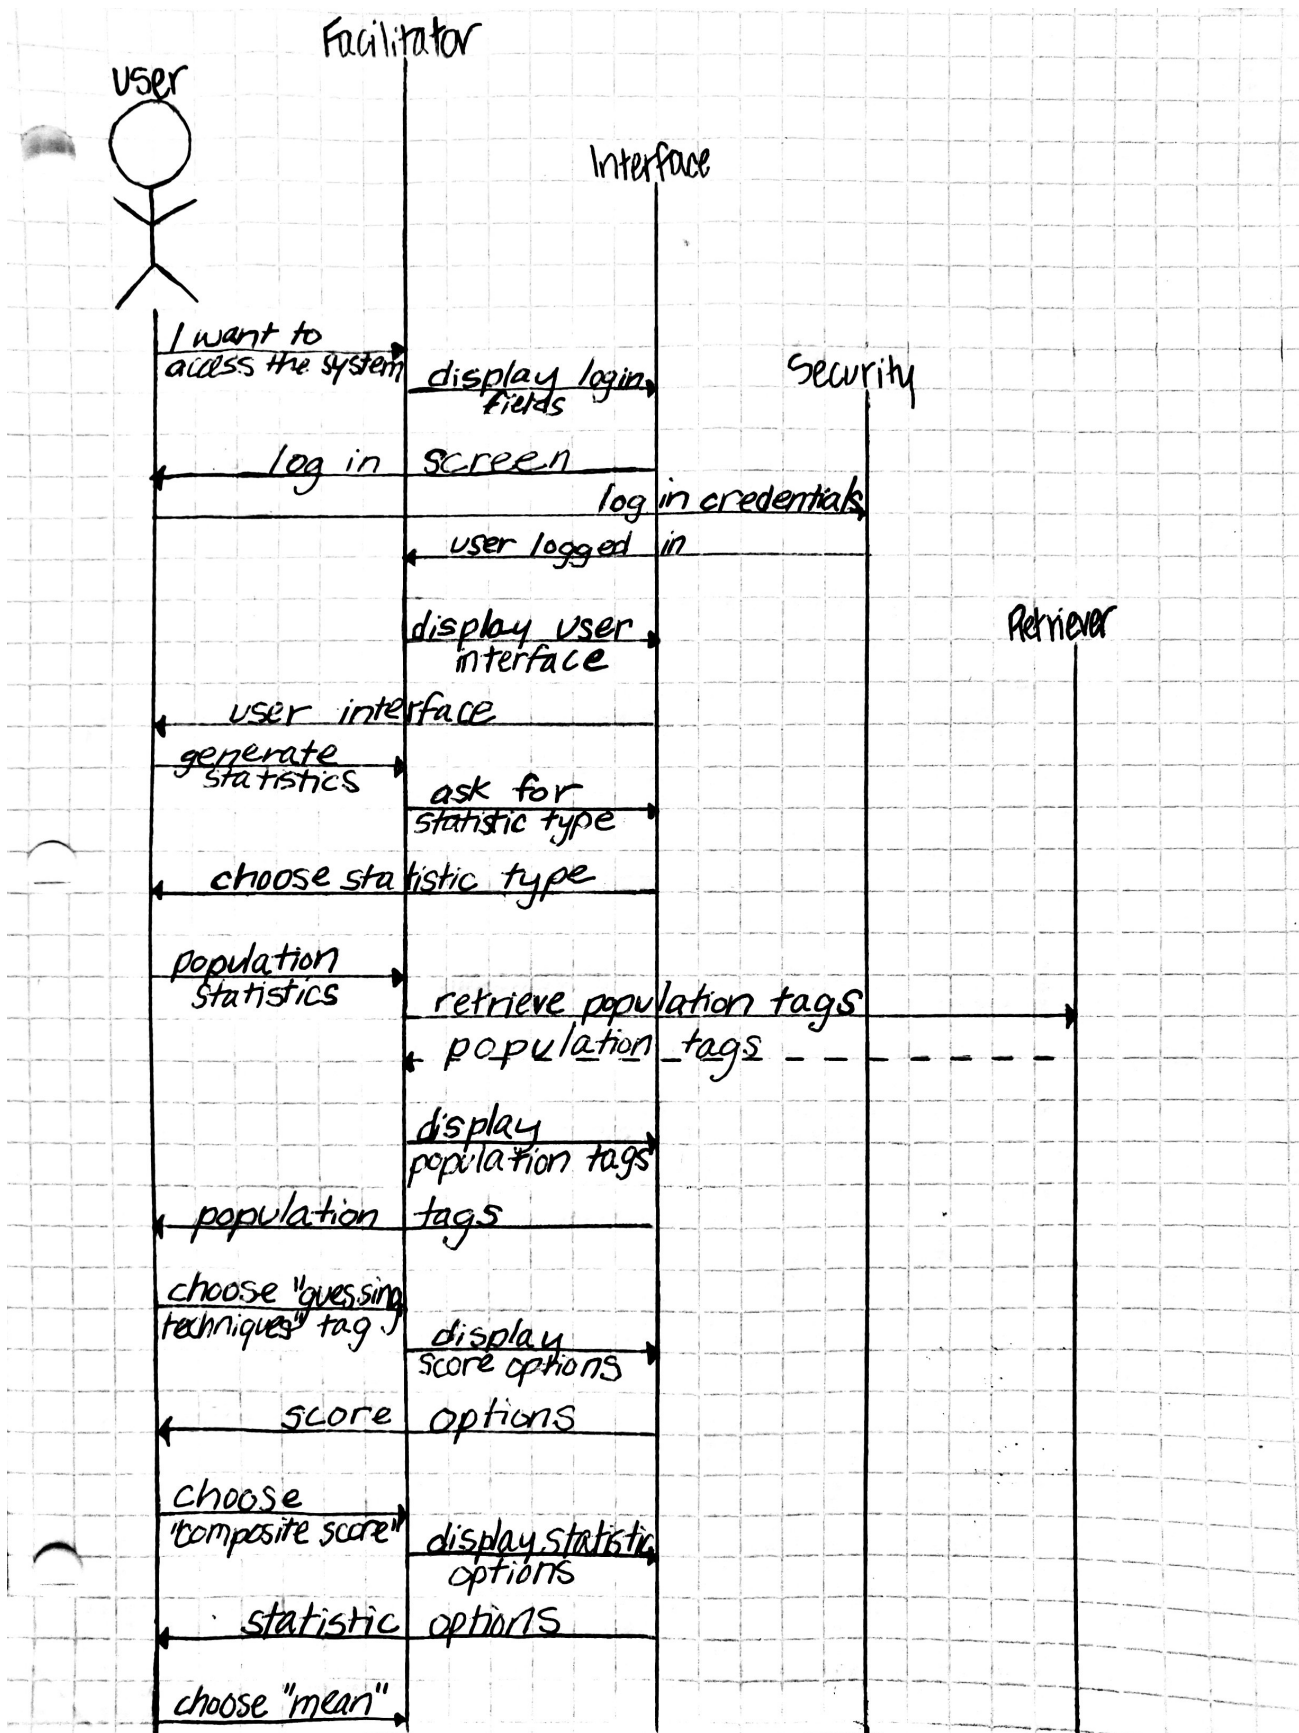 Facilitator
user
Interface
I want to
access the system
display login
fields
Security
log in screen
log in credentials
user logged in
display user
interface
Retriever
user interface
generate
statistics
ask for
statistic type
choose statistic type
population
statistics
retrieve population tags
population tags
display
population tags
population tags
choose "guessing
techniques" tag
display
score options
score options
choose
"composite score"
display statistic
options
statistic options
choose "mean"